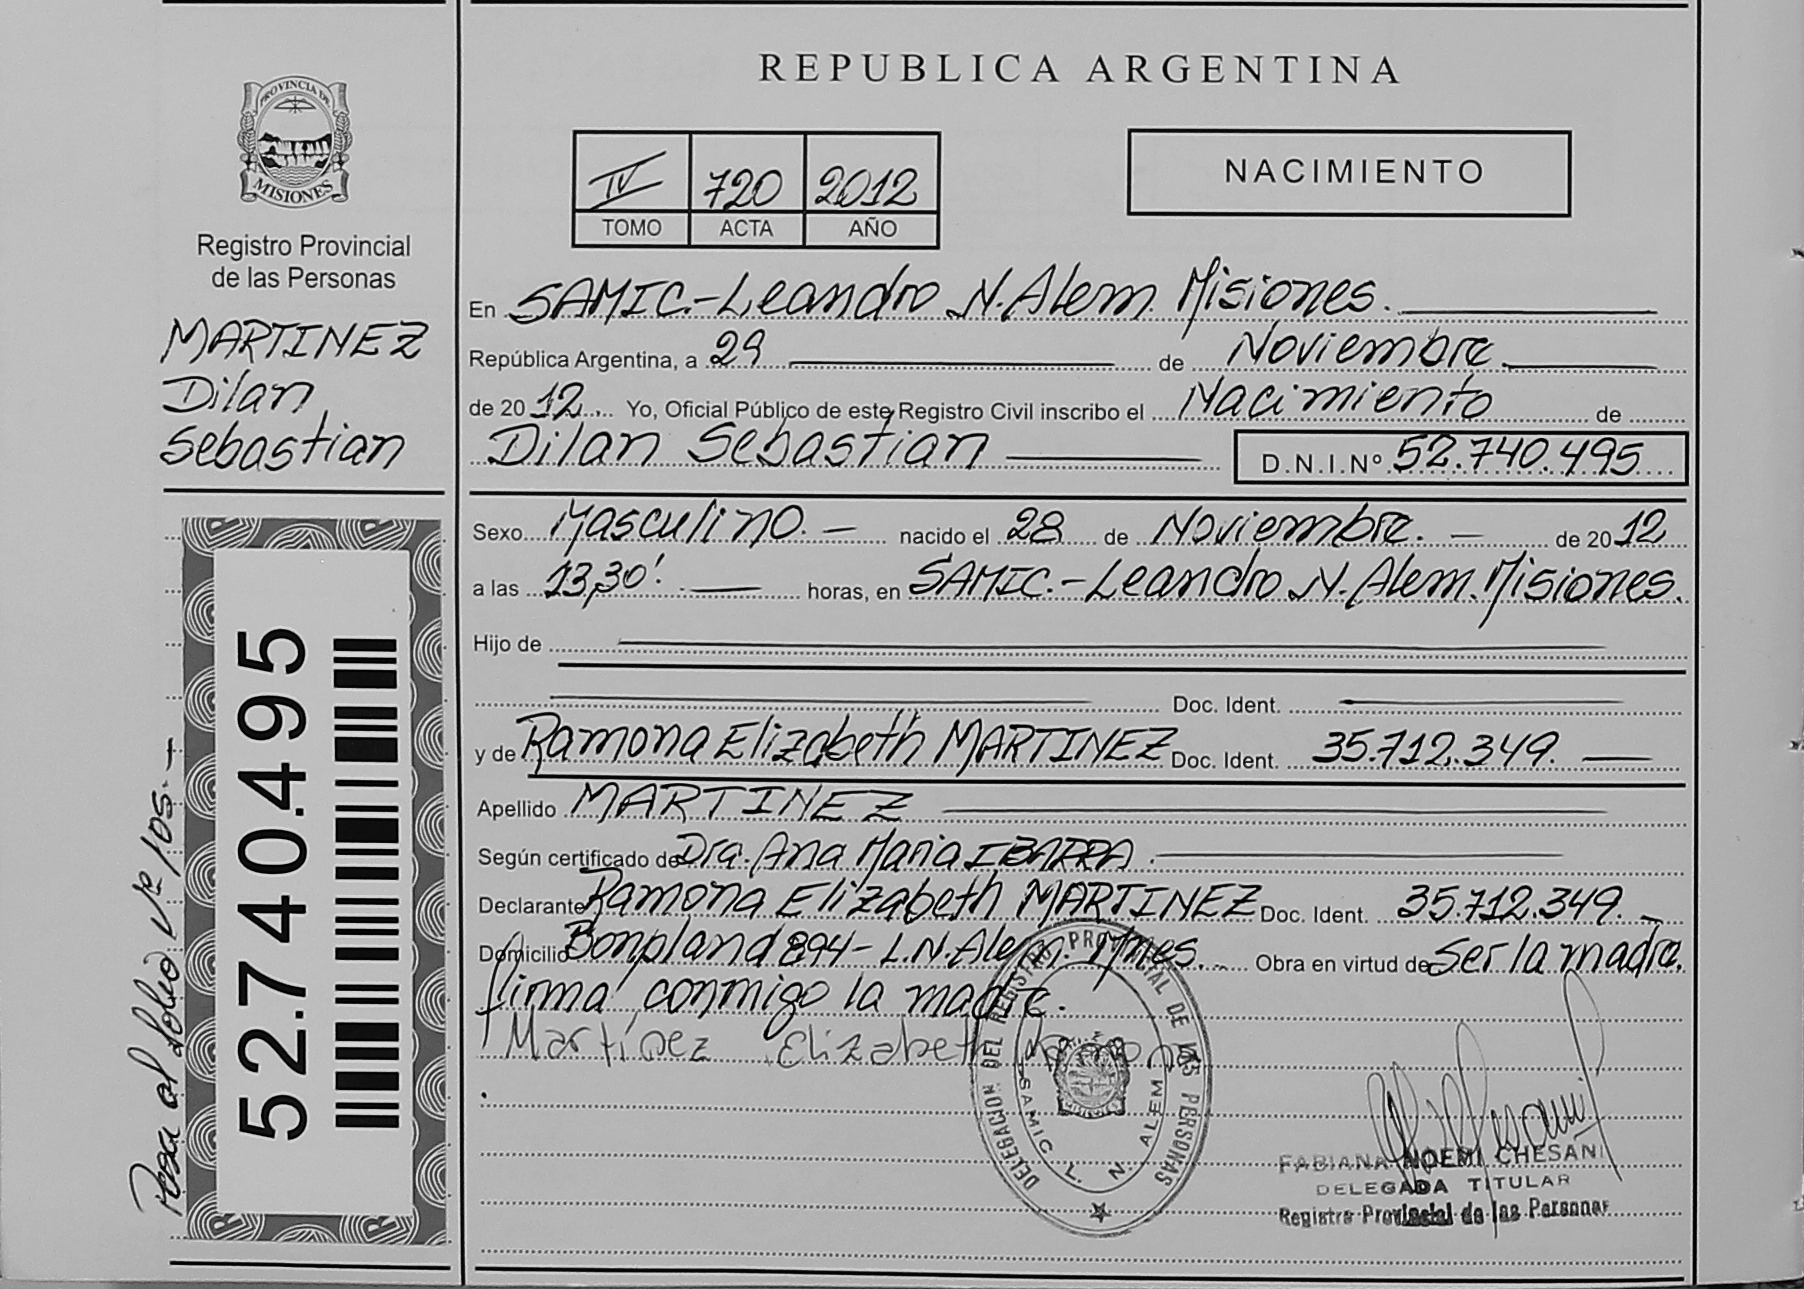 REPUBLICA ARGENTINA
PROVINCIA DE
MISIONES
Registro Provincial
de las Personas
MARTINEZ
Dilan
Sebastian
52.740.495
Pasa al folio Nº 105.-
IV 720 2012
TOMO ACTA AÑO
NACIMIENTO
En SAMIC.-Leandro N. Alem. Misiones.
República Argentina, a 29 de Noviembre
de 2012 Yo, Oficial Público de este Registro Civil inscribo el Nacimiento de
Dilan Sebastian D.N.I.Nº 52.740.495
Sexo Masculino.- nacido el 28 de Noviembre.- de 2012
a las 13,30'. horas, en SAMIC.-Leandro N. Alem. Misiones.
Hijo de
Doc. Ident.
y de Ramona Elizabeth MARTINEZ Doc. Ident. 35.712.349.
Apellido MARTINEZ
Según certificado de Dra. Ana Maria IBARRA.
Declarante Ramona Elizabeth MARTINEZ Doc. Ident. 35.712.349.-
Domicilio Bonpland 894- L.N. Alem. Mnes. Obra en virtud de Ser la madre.
firma conmigo la madre.
Martínez Elizabeth Ramona
DELEGACION DEL REGISTRO PROVINCIAL DE LAS PERSONAS
SAMIC L. N. ALEM
FABIANA NOEMI CHESANI
DELEGADA TITULAR
Registro Provincial de las Personas